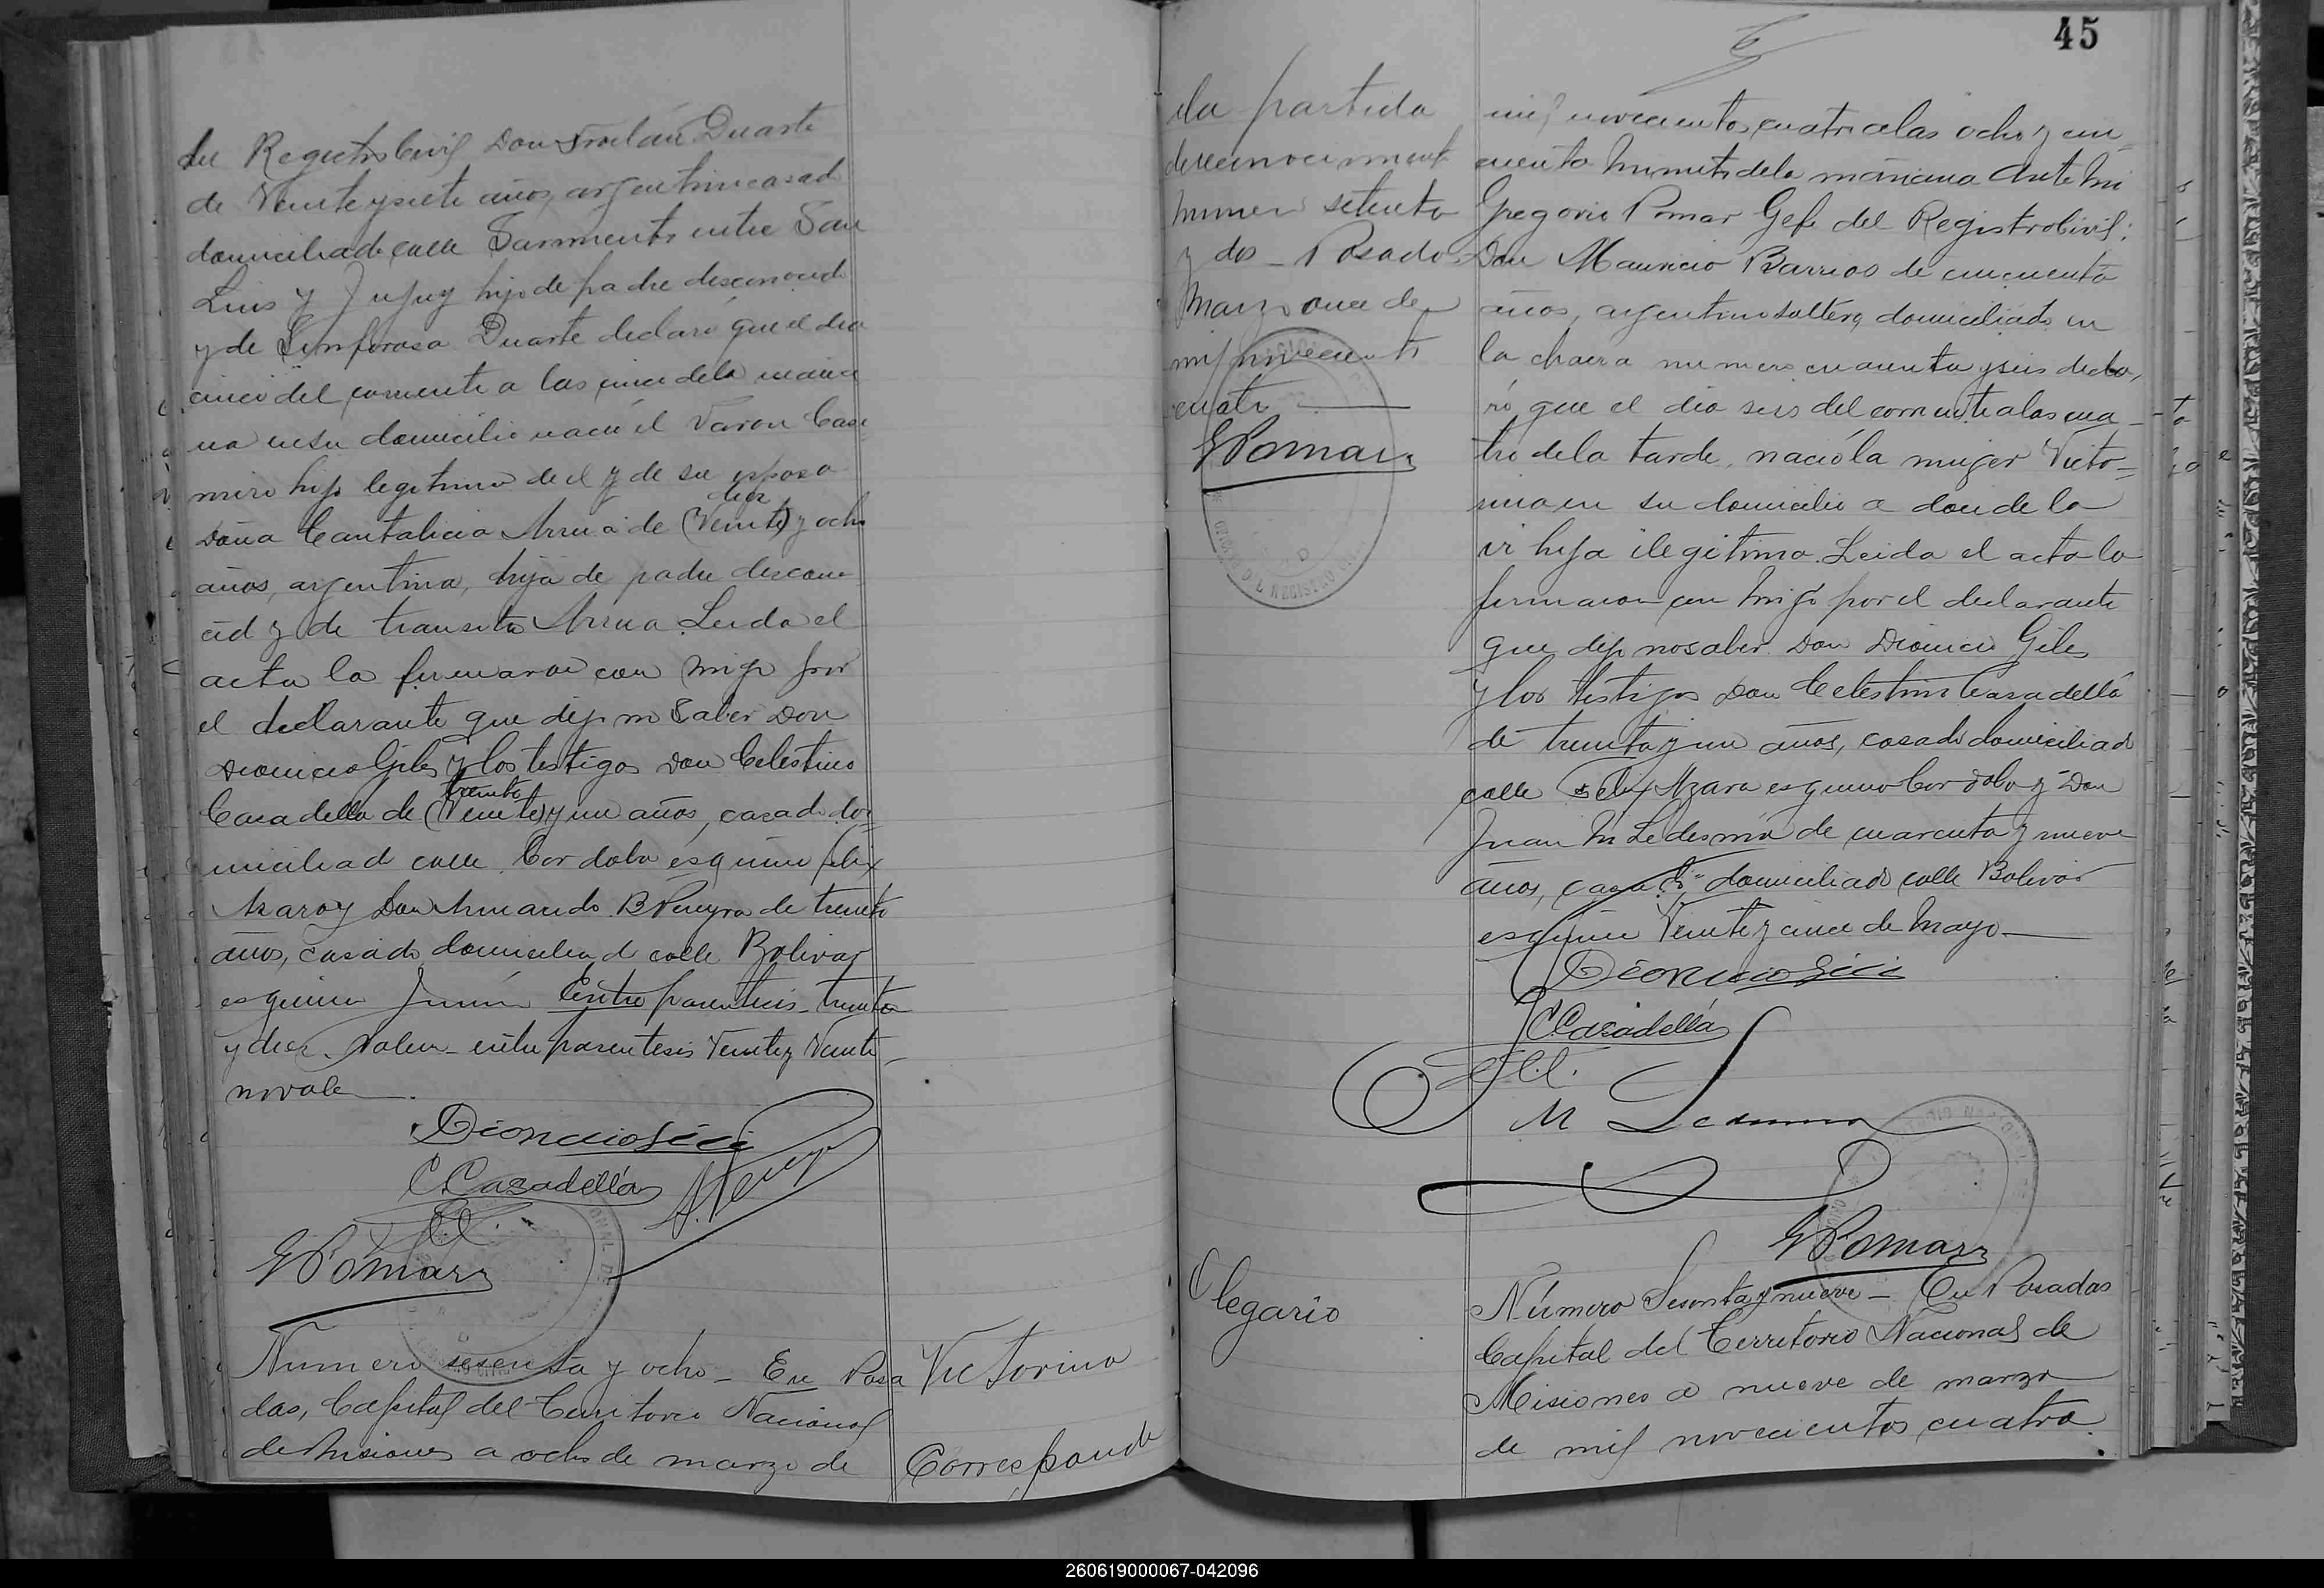 del Registro Civil Don Froilán Duarte
de Veinte y siete años, argentino casado
domiciliado calle Sarmiento entre San
Luis y Jujuy hijo de padre desconocido
y de Sinforosa Duarte declaró que el dia
cinco del corriente a las cinco de la maña
na en su domicilio nació el Varon Casi
miro hijo legitimo de el y de su esposa
diez
Doña Cantalicia Arrua de (Veinte) y ocho
años, argentina, hija de padre descono
cid y de transito Arrua. Leida el
acta la firmaron con migo por
el declarante que dijo no Saber Don
Dionicio Giles y los testigos Don Celestino
treinta
Casadella de (Veinte) y un años, casado do
miciliad calle Cordoba esquina felix
Azara y Don Armando B Pereyra de treinta
años, casado domiciliad calle Bolivar
esquina Junín Entre parentesis - treinta
y diez. Valen - entre parentesis Veinte y Veinte
no vale
C Casadellá
G Pomar
Numero sesenta y ocho - En Posa
das, Capital del Territorio Nacional
de Misiones a ocho de marzo de
Victorina
Corresponde
45
la partida
de reconocimient
numero setenta
y dos - Posadas
Marzo once de
mil novecient
cuatro
G Pomar
mil novecientos cuatro a las ocho y cin
cuenta minutos de la mañana Ante mi
Gregorio Pomar Gefe del Registro Civil:
Don Mauricio Barrios de cincuenta
años, argentino soltero, domiciliado en
la chacra numero cuarenta y seis decla
ró que el dia seis del corriente a las cua
tro de la tarde, nació la mujer Victo
rina en su domicilio a donde la
vi hija ilegitima. Leida el acta la
firmaron con migo por el declarante
que dijo no saber Don Dionicio Giles
y los testigos Don Celestino Casadellá
de treinta y un años, casado domiciliado
calle Felix Azara esquina Cordoba y Don
Juan M Ledesma de cuarenta y nueve
años, casado domiciliado calle Bolivar
esquina Veinte y cinco de Mayo
C Casadellá
G Pomar
Olegario
Número Sesenta y nueve - En Posadas
Capital del Territorio Nacional de
Misiones a nueve de marzo
de mil novecientos cuatro
260619000067-042096